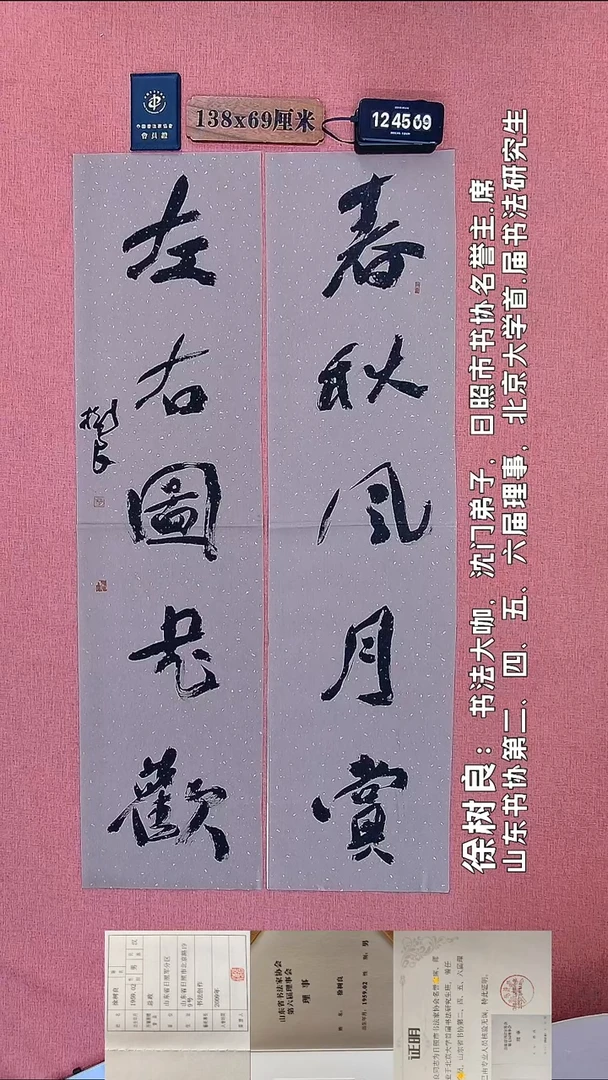 中国书法家协会
會員證
138x69厘米
12 45 09
春秋风月賞
左右圖書歡
樹良
徐树良：书法大咖，沈门弟子，日照市书协名誉主.席
山东书协第二、四、五、六届理事，北京大学首.届书法研究生
徐树良
1959.02 男 汉
2009年
山东省书法家协会
第六届理事会
理 事
徐树良 男
1959.02
证明